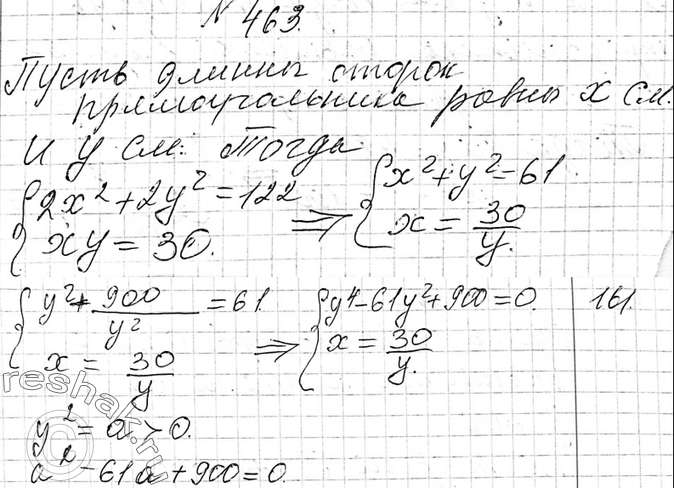 № 463.
Пусть длинны сторон
прямоугольника равны x см.
и y см. Тогда
{ 2x² + 2y² = 122 ⇒ { x² + y² = 61
{ xy = 30. { x = 30/y.
{ y² + 900/y² = 61. ⇒ { y⁴ - 61y² + 900 = 0. 161.
{ x = 30/y { x = 30/y.
y² = a > 0.
a² - 61a + 900 = 0.
reshak.ru